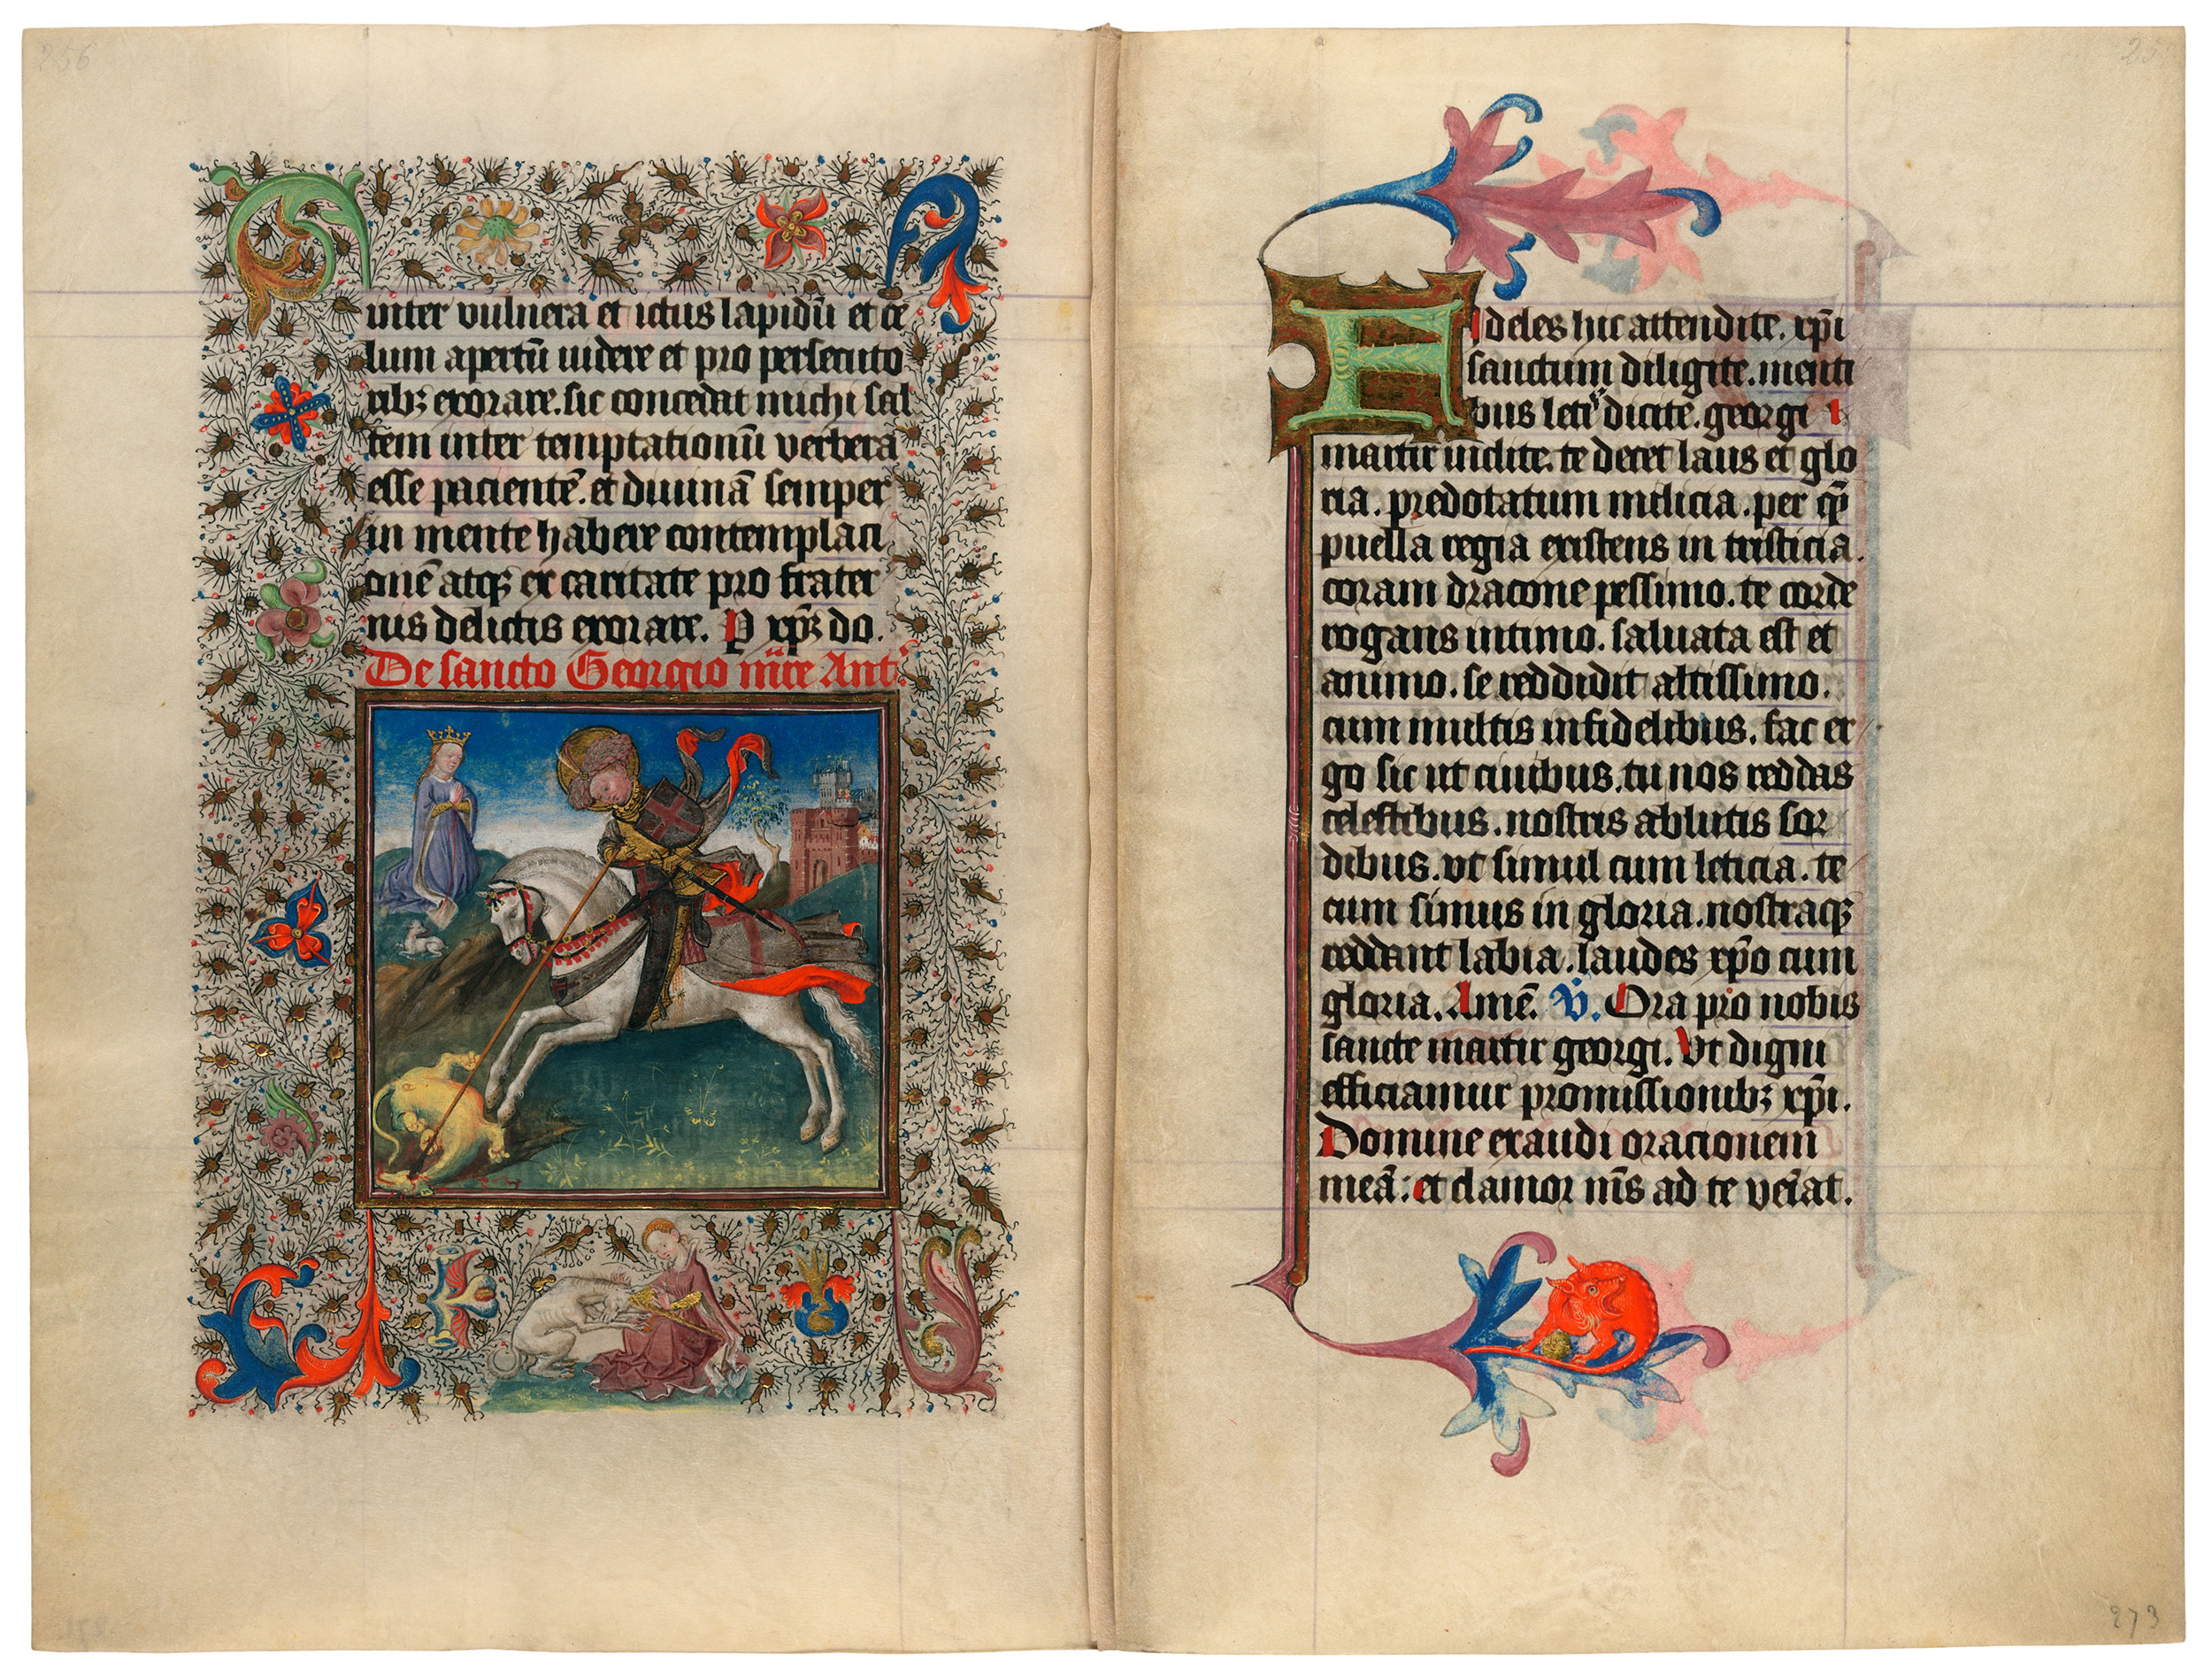 256
inter vulnera et ictus lapidū et ce
lum apertū uidere et pro persecuto
ribꝫ exorare. sic concedat michi sal
tem inter temptationū verbera
esse pacientē. et diuinā semper
in mente habere contemplaci
onē atqꝫ ex caritate pro frater
nis delictis exorare. P xp̄ꝫ do.
De sancto Georgio Ant
Fideles hic attendite. xp̄i
sanctum diligite. menti
bus leti dicite. georgi
martir inclite. te decet laus et glo
ria. predotatum milicia. per qm̄
puella regia existens in tristicia.
coram dracone pessimo. te corde
rogans intimo. saluata est et
animo. se reddidit altissimo.
cum multis infidelibus. fac er
go sic ut ciuibus. tu nos reddas
celestibus. nostris ablutis sor
dibus. vt simul cum leticia. te
cum simus in gloria. nostraqꝫ
reddant labia. laudes xp̄o cum
gloria. Amē. V̇. Ora pro nobis
sancte martir georgi. Vt digni
efficiamur promissionibꝫ xp̄i.
Domine exaudi oracionem
meā: et clamor m̄s ad te ueīat.
273